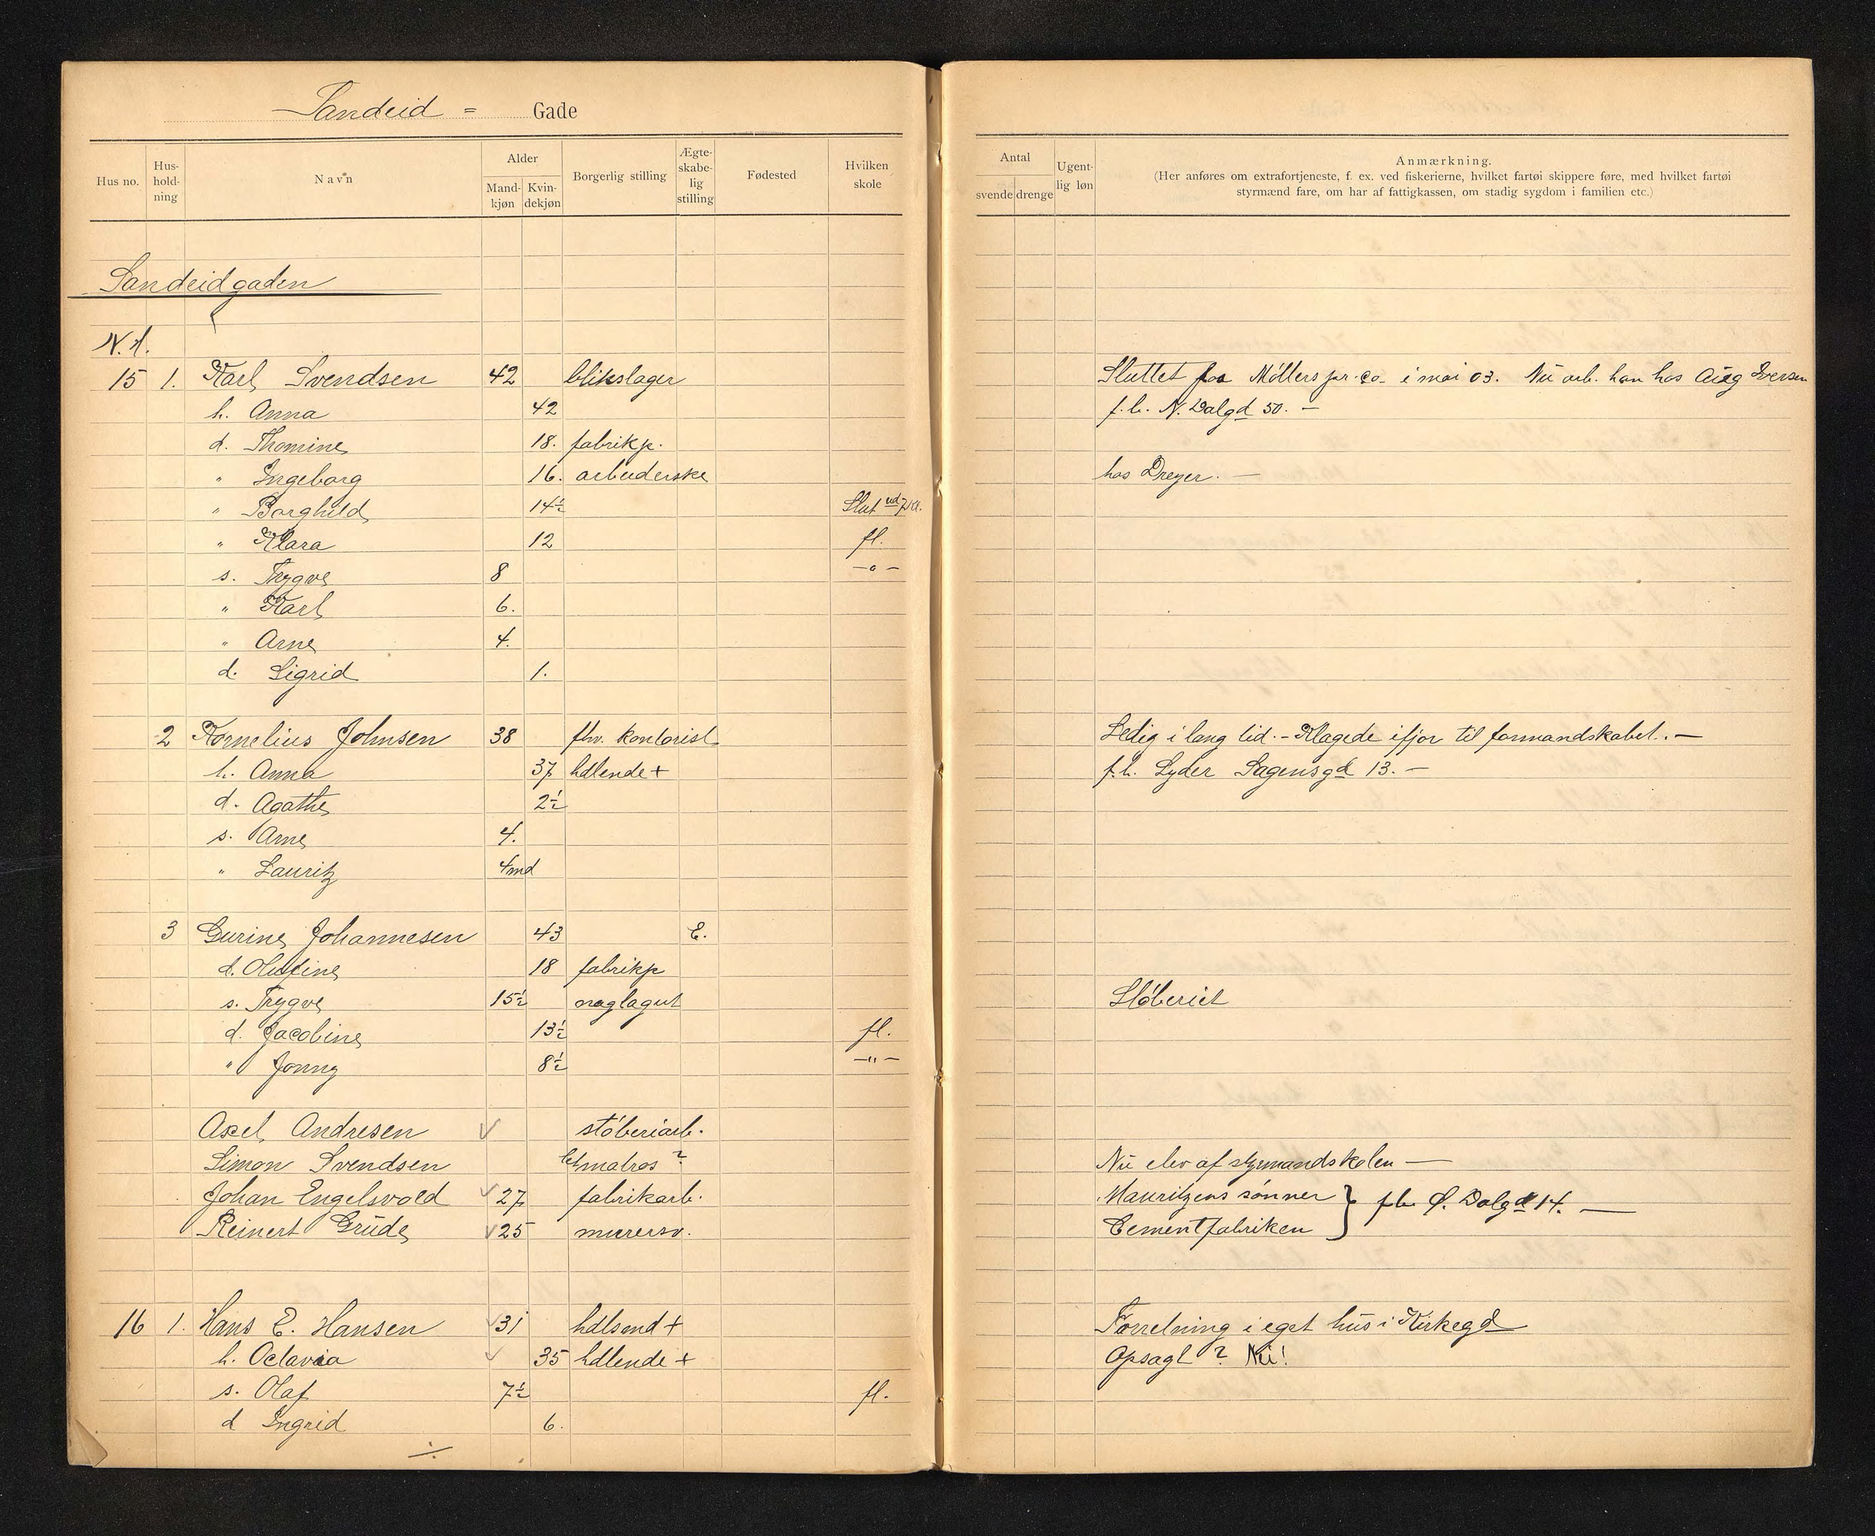 Sandeid = Gade
Hus no. Hus-hold-ning Navn Alder Mand-kjøn Kvin-dekjøn Borgerlig stilling Ægte-skabe-lig stilling Fødested Hvilken skole Antal svende drenge Ugent-lig løn Anmærkning.
(Her anføres om extrafortjeneste, f. ex. ved fiskerierne, hvilket fartøi skippere føre, med hvilket fartøi
styrmænd fare, om har af fattigkassen, om stadig sygdom i familien etc.)
Sandeidgaden
N.A.
15 1. Karl Svendsen 42 blikslager Sluttet paa Møllers pr. Co. i mai 03. Nu arb. han hos Aug Iversen
h. Anna 42 f.b. N. Dalgd 50. —
d. Thomine 18. fabrikp.
" Ingeborg 16. arbeiderske hos Dreyer. —
" Borghild 14½ Slut ud 7 kl.
" Klara 12 fl.
s. Trygve 8 —"—
" Karl 6.
" Arne 4.
d. Sigrid 1.
2 Kornelius Johnsen 38 fhv. kontorist Ledig i lang tid. - Klagede ifjor til formandskabet. —
h. Anna 37 hdlende + f.b. Lyder Sagensgd 13. —
d. Agathe 2½
s. Arne 4.
" Lauritz 4md
3 Gurine Johannesen 43 E.
d. Olufine 18 fabrikp
s. Trygve 15½ naglagut Støberiet
d. Jacobine 13½ fl.
" Jonny 8½ —"—
Axel Andresen støberiarb.
Simon Svendsen letmatros ? Nu elev af styrmandskolen —
Johan Engelsvold 27 fabrikarb. Mauritzens sønner } f.b. Ø. Dalgd 14. —
Reinert Grude 25 murersv. Cementfabriken
16 1. Hans E. Hansen 31 hdlsmd + Forretning i eget hus i Kirkegd
h. Octavia 35 hdlende + Opsagt ? Nei!
s. Olaf 7½ fl.
d Ingrid 6.